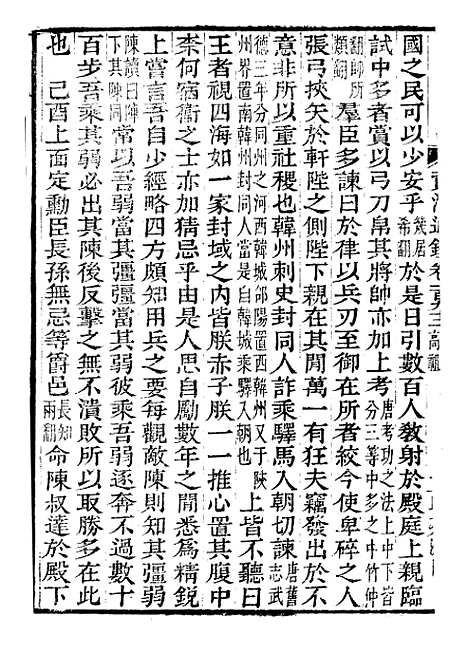 國之民可以少安乎幾居希翻於是日引數百人教射於殿庭上親臨
試中多者賞以弓刀帛其將帥亦加上考唐考功之法上中下皆分三等中多之中竹仲
翻帥所類翻羣臣多諫曰於律以兵刃至御在所者絞今使卑碎之人
張弓挾矢於軒陛之側陛下親在其間萬一有狂夫竊發出於不
意非所以重社稷也韓州刺史封同人詐乘驛馬入朝切諫唐舊志武
德三年分同州之河西韓城郃陽置西韓州又於陝州界置南韓州封同人當是自韓城乘驛入朝也上皆不聽曰
王者視四海如一家封域之内皆朕赤子朕一一推心置其腹中
柰何宿衞之士亦加猜忌乎由是人思自勵數年之間悉爲精銳
上嘗言吾自少經略四方頗知用兵之要每觀敵陳則知其彊弱
陳讀曰陣下其陳同常以吾弱當其彊彊當其弱彼乘吾弱逐奔不過數十
百步吾乘其弱必出其陳後反擊之無不潰敗所以取勝多在此
也 己酉上面定勳臣長孫無忌等爵邑長知兩翻命陳叔達於殿下